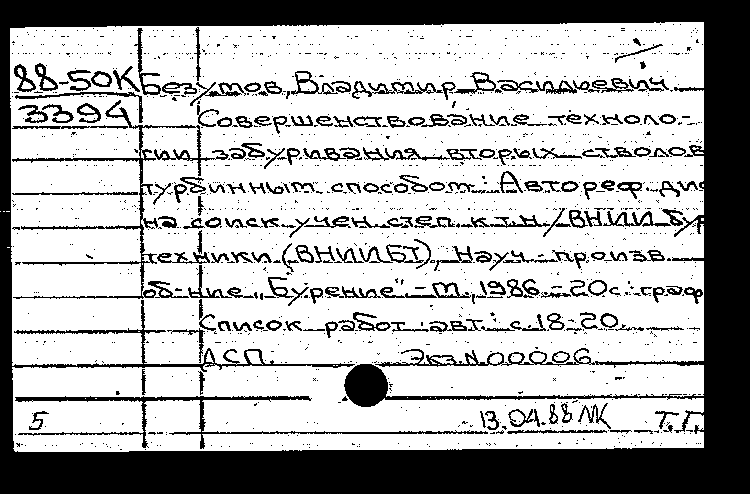 88-50К Безумов, Владимир Васильевич
3394 Совершенствование техноло-
гии забуривания вторых стволов
турбинным способом: Автореф. дис
на соиск учен степ. к.т.н/ВНИИ бур
техники (ВНИИБТ), Науч-произв.
об-ние „Бурение"-М., 1986.-20с.:граф
Список работ авт.: с.18-20.
ДСП. Экз.N00006
5 13.04.88 Т.Г.